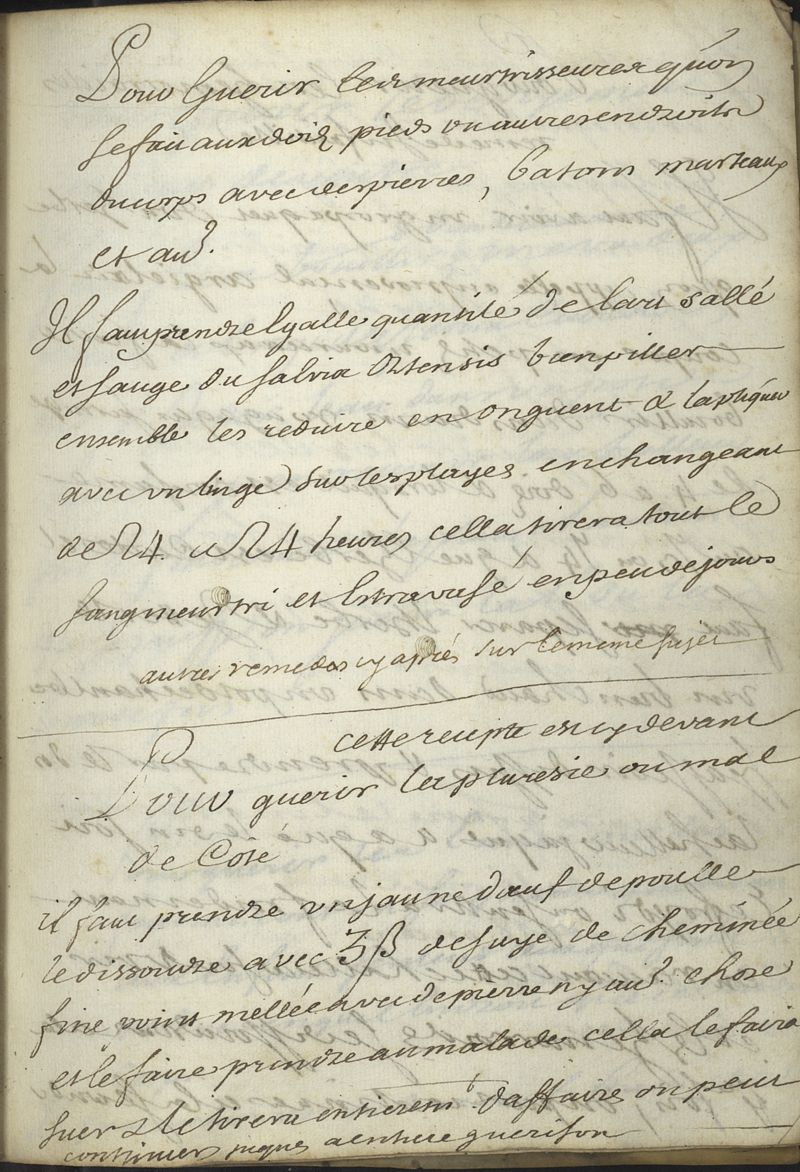 Pour Guerir les meurtrisseures qu'on
se fait aux doits pieds ou autres endroits
du corps avec des pierres, batons marteaux
et au?.
Il faut prendre Egalle quantité de lart sallé
et sauge ou salvia Ortensis bien piller
ensemble les reduire en onguent & lapliquer
avec un linge sur les playes en changeant
de 24 a 24 heures cella tirera tout le
sang meurtri et Extravasé en peu de jours
autres remedes cy aprés sur le meme sujet
cette recepte est cy devant
Pour guerir la pluresie ou mal
de Coté
il faut prendre un jaune d'œuf de poulle
le dissoudre avec 3ß de suye de cheminée
fine point mellée avec de pierre ny au? chose
et le faire prendre au malade cella le faira
suer & le tirera entierem.t d'affaire on peut
continuer juques a entiere guerison